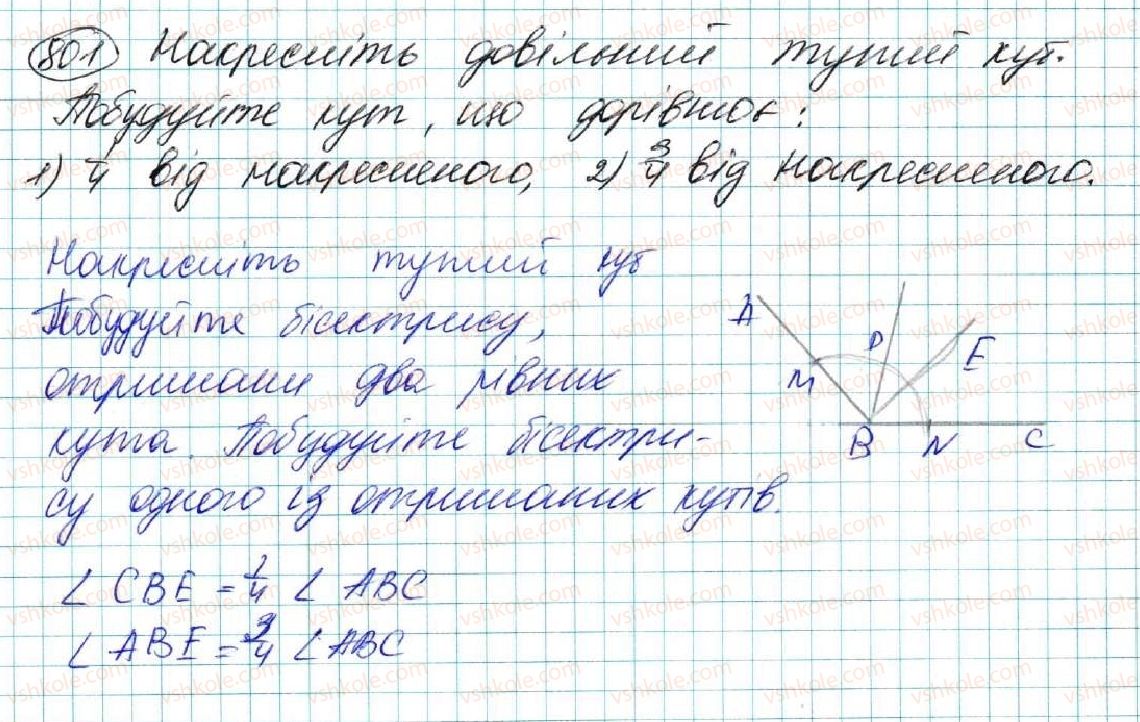 801 Накресліть довільний тупий кут.
Побудуйте кут, що дорівнює:
1) 1/4 від накресленого, 2) 3/4 від накресленого.
Накресліть тупий кут
Побудуйте бісектрису,
отримали два рівних
кута. Побудуйте бісектри-
су одного із отриманих кутів.
∠ CBE = 1/4 ∠ ABC
∠ ABE = 3/4 ∠ ABC
A
D
E
M
B N C
vshkole.com